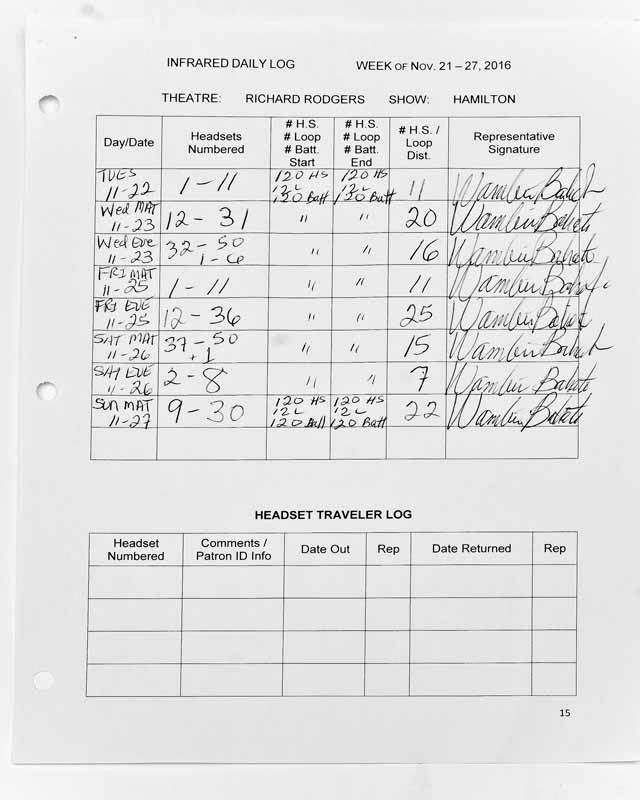 INFRARED DAILY LOG WEEK OF NOV. 21 – 27, 2016
THEATRE: RICHARD RODGERS SHOW: HAMILTON
Day/Date
Headsets
Numbered
# H.S.
# Loop
# Batt.
Start
# H.S.
# Loop
# Batt.
End
# H.S. /
Loop
Dist.
Representative
Signature
TUES
11-22
1-11
120 HS
12 L
120 Batt
120 HS
12 L
120 Batt
11
Wed MAT
11-23
12-31
"
"
20
Wed Eve
11-23
32-50
1-6
"
"
16
FRI MAT
11-25
1-11
"
"
11
FRI EVE
11-25
12-36
"
"
25
SAT MAT
11-26
37-50
+1
"
"
15
SAT EVE
11-26
2-8
"
"
7
SUN MAT
11-27
9-30
120 HS
12 L
120 Batt
120 HS
12 L
120 Batt
22
HEADSET TRAVELER LOG
Headset
Numbered
Comments /
Patron ID Info
Date Out
Rep
Date Returned
Rep
15